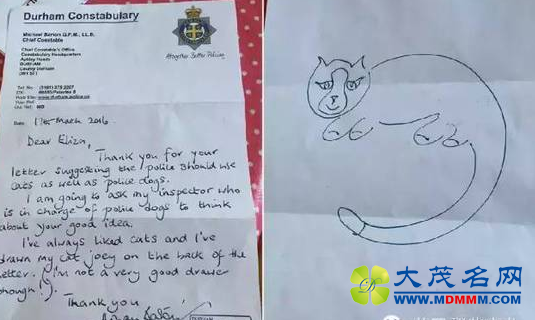 Durham Constabulary
Chief Constable
Chief Constable's Office
Constabulary Headquarters
Aykley Heads
Altogether Better Policing
Date:
March 2016
Dear Eliza,
Thank you for your
letter suggesting the police should use
cats as well as police dogs.
I am going to ask my inspector who
is in charge of police dogs to think
about your good idea.
I've always liked cats and I've
drawn my cat Joey on the back of the
letter. (I'm not a very good drawer
though!).
Thank you
大茂名网
WWW.MDMMM.COM